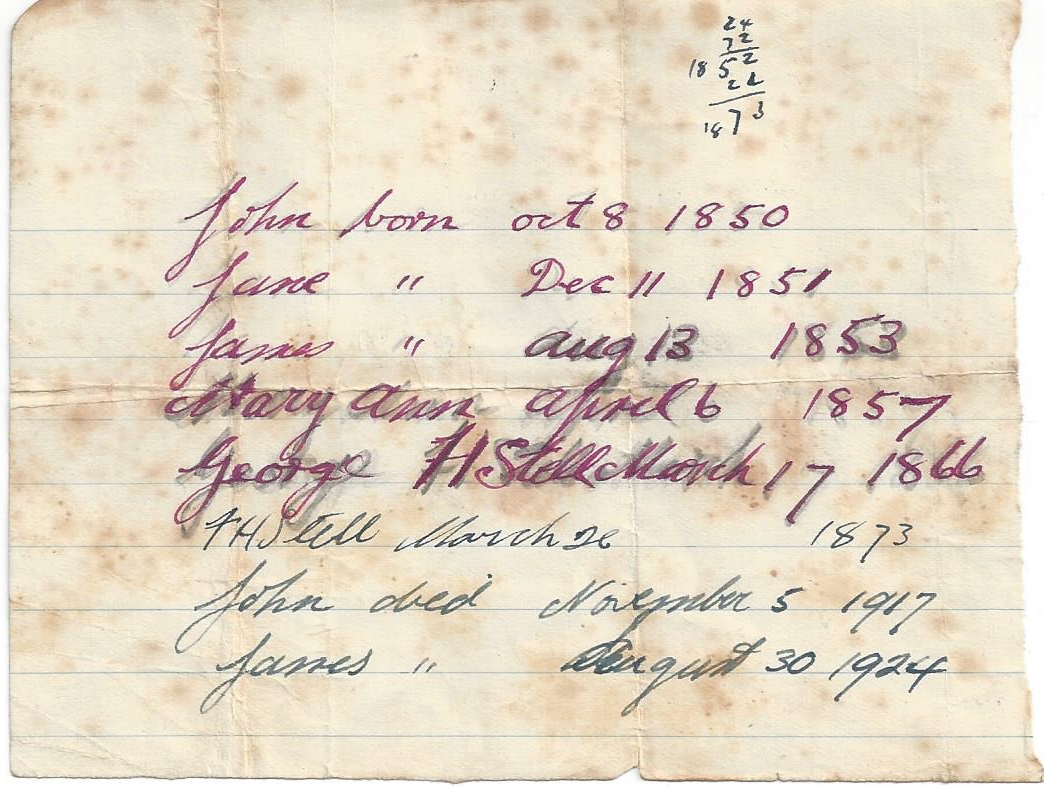 24
72
18 52
21
18 73
John born oct 8 1850
Jane " Dec 11 1851
James " aug 13 1853
Mary ann april 6 1857
George H Stell March 17 1866
F H Stell March 26 1873
John died November 5 1917
James " August 30 1924